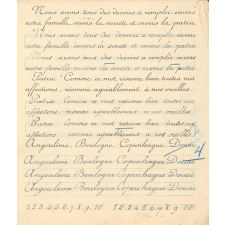 Nous avons tous des devoirs à remplir envers
notre famille, envers la société et envers la patrie
Nous avons tous des devoirs à remplir envers
notre famille envers la société et envers la patrie
Nous avons tous des devoirs à remplir envers
notre famille envers la société et envers la patrie
Patrie! Comme ce mot résume bien toutes nos
affections, résonne agréablement à nos oreilles.
Patrie Comme ce mot résume bien toutes nos
affections, résonne agréablement à nos oreilles
Patrie Comme ce mot résume bien toutes nos
affections résonne agréablement à nos oreilles
Angoulême, Boulogne, Copenhague, Douai
Angoulême Boulogne Copenhague Douai
Angoulême Boulogne Copenhague Douai
Angoulême Boulogne Copenhague Douai
1 2 3 4 5 6 7 8 9 10 1 2 3 4 5 6 7 8 9 10